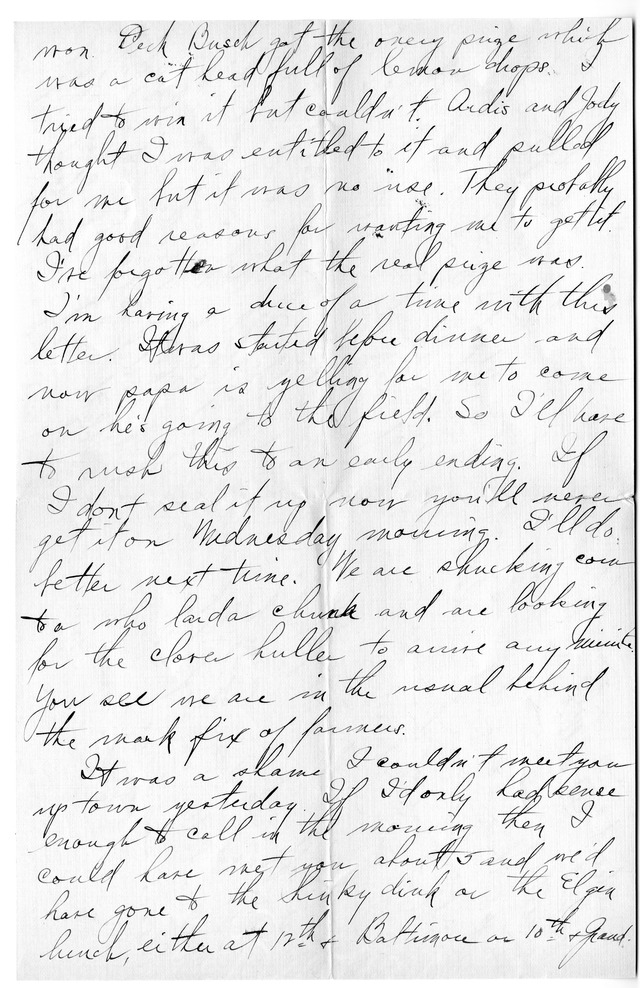 won. Dick Busch got the onery prize which
was a cat head full of lemon drops. I
tried to win it but couldn't. Ardis and Jody
thought I was entitled to it and pulled
for me but it was no use. They probably
had good reasons for wanting me to get it.
I've forgotten what the real prize was.
I'm having a duce of a time with this
letter. It was started before dinner and
now papa is yelling for me to come
on he's going to the field. So I'll have
to rush this to an early ending. If
I dont seal it up now you'll never
get it on Wednesday morning. I'll do
better next time. We are shucking corn
to a who larda chunk and are looking
for the clover huller to arrive any minute
You see we are in the usual behind
the mark fix of farmers.
It was a shame I couldn't meet you
up town yesterday. If I'd only had sense
enough to call in the morning then I
could have met you about 5 and we'd
have gone to the hinkydink or the Elgin
lunch, either at 12th & Baltimore or 10th & Grand.